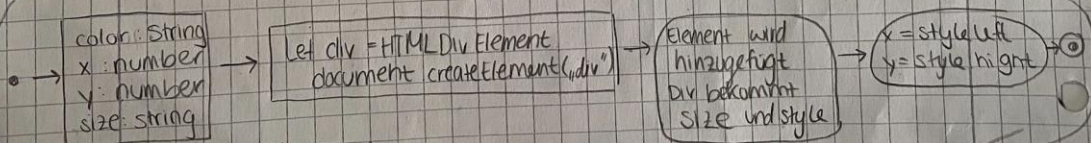 color: String
x: number
y: number
size: string
Let div = HTML Div Element
document createElement(„div")
Element wird
hinzugefügt
Div bekommt
size und style
x = style left
y = style hight